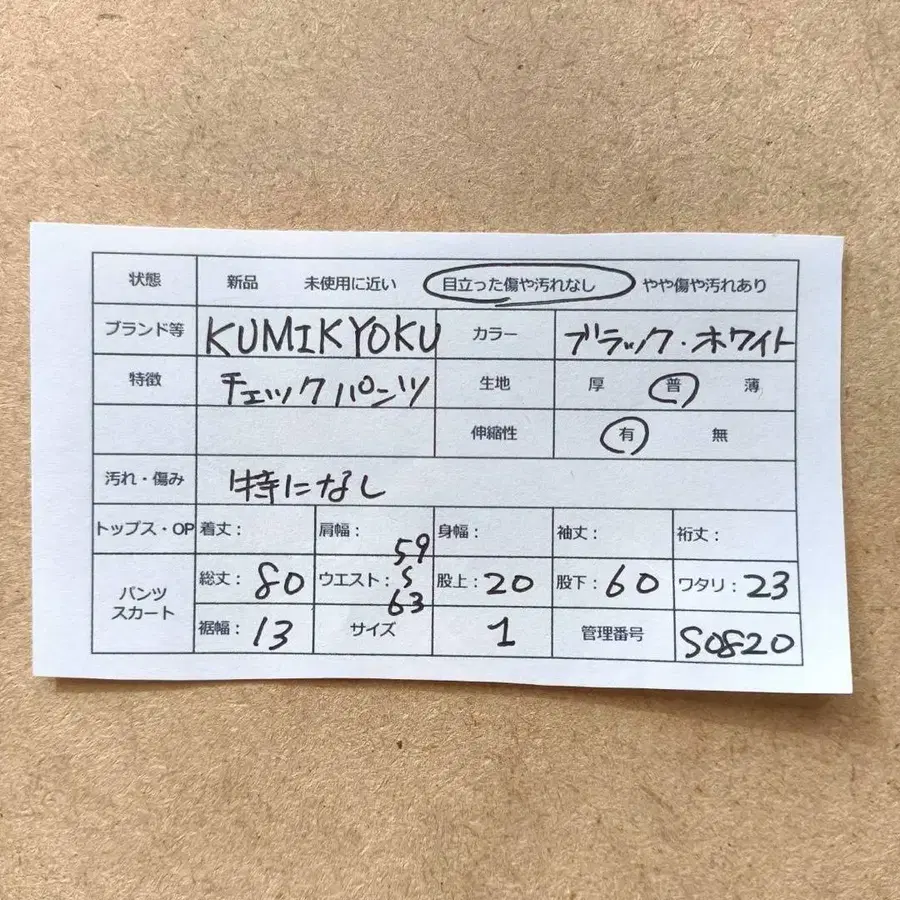 状態 新品 未使用に近い 目立った傷や汚れなし やや傷や汚れあり
ブランド等 KUMIKYOKU カラー ブラック・ホワイト
特徴 チェックパンツ 生地 厚 普 薄
伸縮性 有 無
汚れ・傷み 特になし
トップス・OP 着丈: 肩幅: 身幅: 袖丈: 裄丈:
パンツ スカート 総丈: 80 ウエスト: 59 S 63 股上: 20 股下: 60 ワタリ: 23
裾幅: 13 サイズ 1 管理番号 S0820